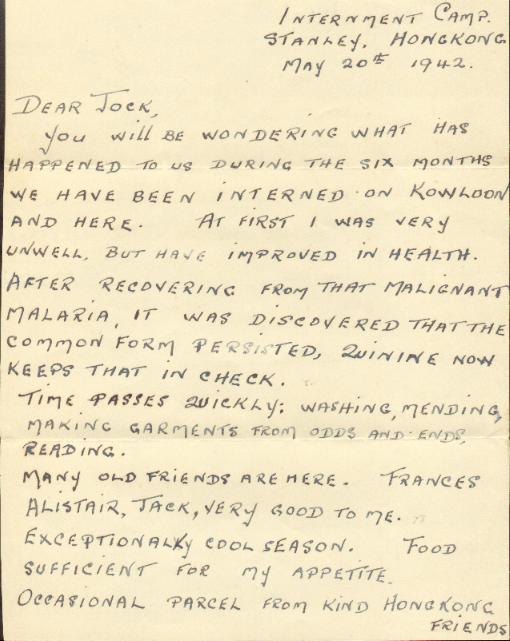 INTERNMENT CAMP.
STANLEY, HONGKONG
MAY 20TH 1942.
DEAR JOCK,
YOU WILL BE WONDERING WHAT HAS
HAPPENED TO US DURING THE SIX MONTHS
WE HAVE BEEN INTERNED ON KOWLOON
AND HERE. AT FIRST I WAS VERY
UNWELL, BUT HAVE IMPROVED IN HEALTH.
AFTER RECOVERING FROM THAT MALIGNANT
MALARIA, IT WAS DISCOVERED THAT THE
COMMON FORM PERSISTED, QUININE NOW
KEEPS THAT IN CHECK.
TIME PASSES QUICKLY; WASHING, MENDING,
MAKING GARMENTS FROM ODDS AND ENDS,
READING.
MANY OLD FRIENDS ARE HERE. FRANCES
ALISTAIR, JACK, VERY GOOD TO ME.
EXCEPTIONALLY COOL SEASON. FOOD
SUFFICIENT FOR MY APPETITE.
OCCASIONAL PARCEL FROM KIND HONGKONG
FRIENDS